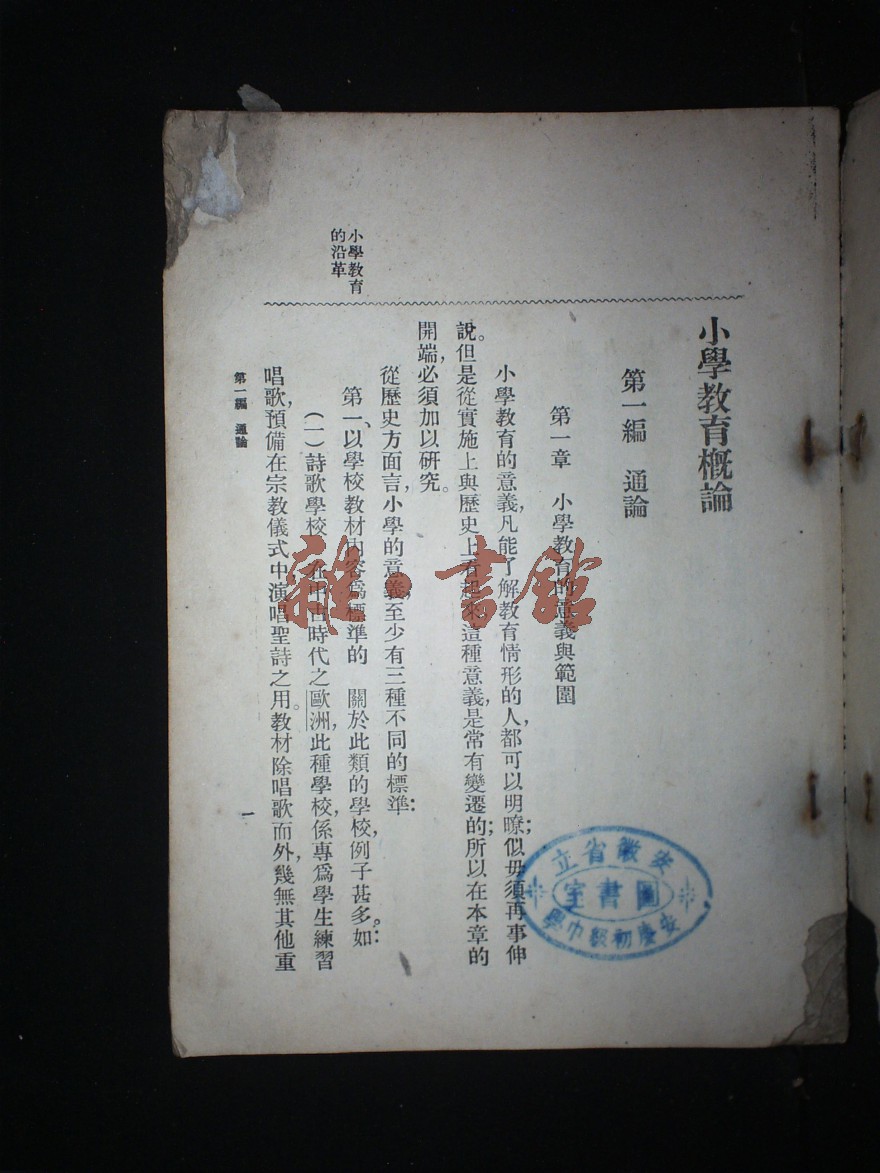 小學教育概論
第一編　通論
第一章　小學教育的意義與範圍
小學教育的意義，凡能了解教育情形的人，都可以明瞭；似毋須再事伸
說。但是從實施上與歷史上看起來，這種意義，是常有變遷的，所以在本章的
開端，必須加以研究。
小學教育
的沿革
從歷史方面言，小學的意義，至少有三種不同的標準：
第一、以學校教材內容爲標準的　關於此類的學校，例子甚多。如：
（一）詩歌學校　在中古時代之歐洲，此種學校，係專爲學生練習
唱歌，預備在宗教儀式中演唱聖詩之用。教材除唱歌而外，幾無其他重
第一編　通論
一
安徽省立
圖書室
安慶初級中學
雜·書館